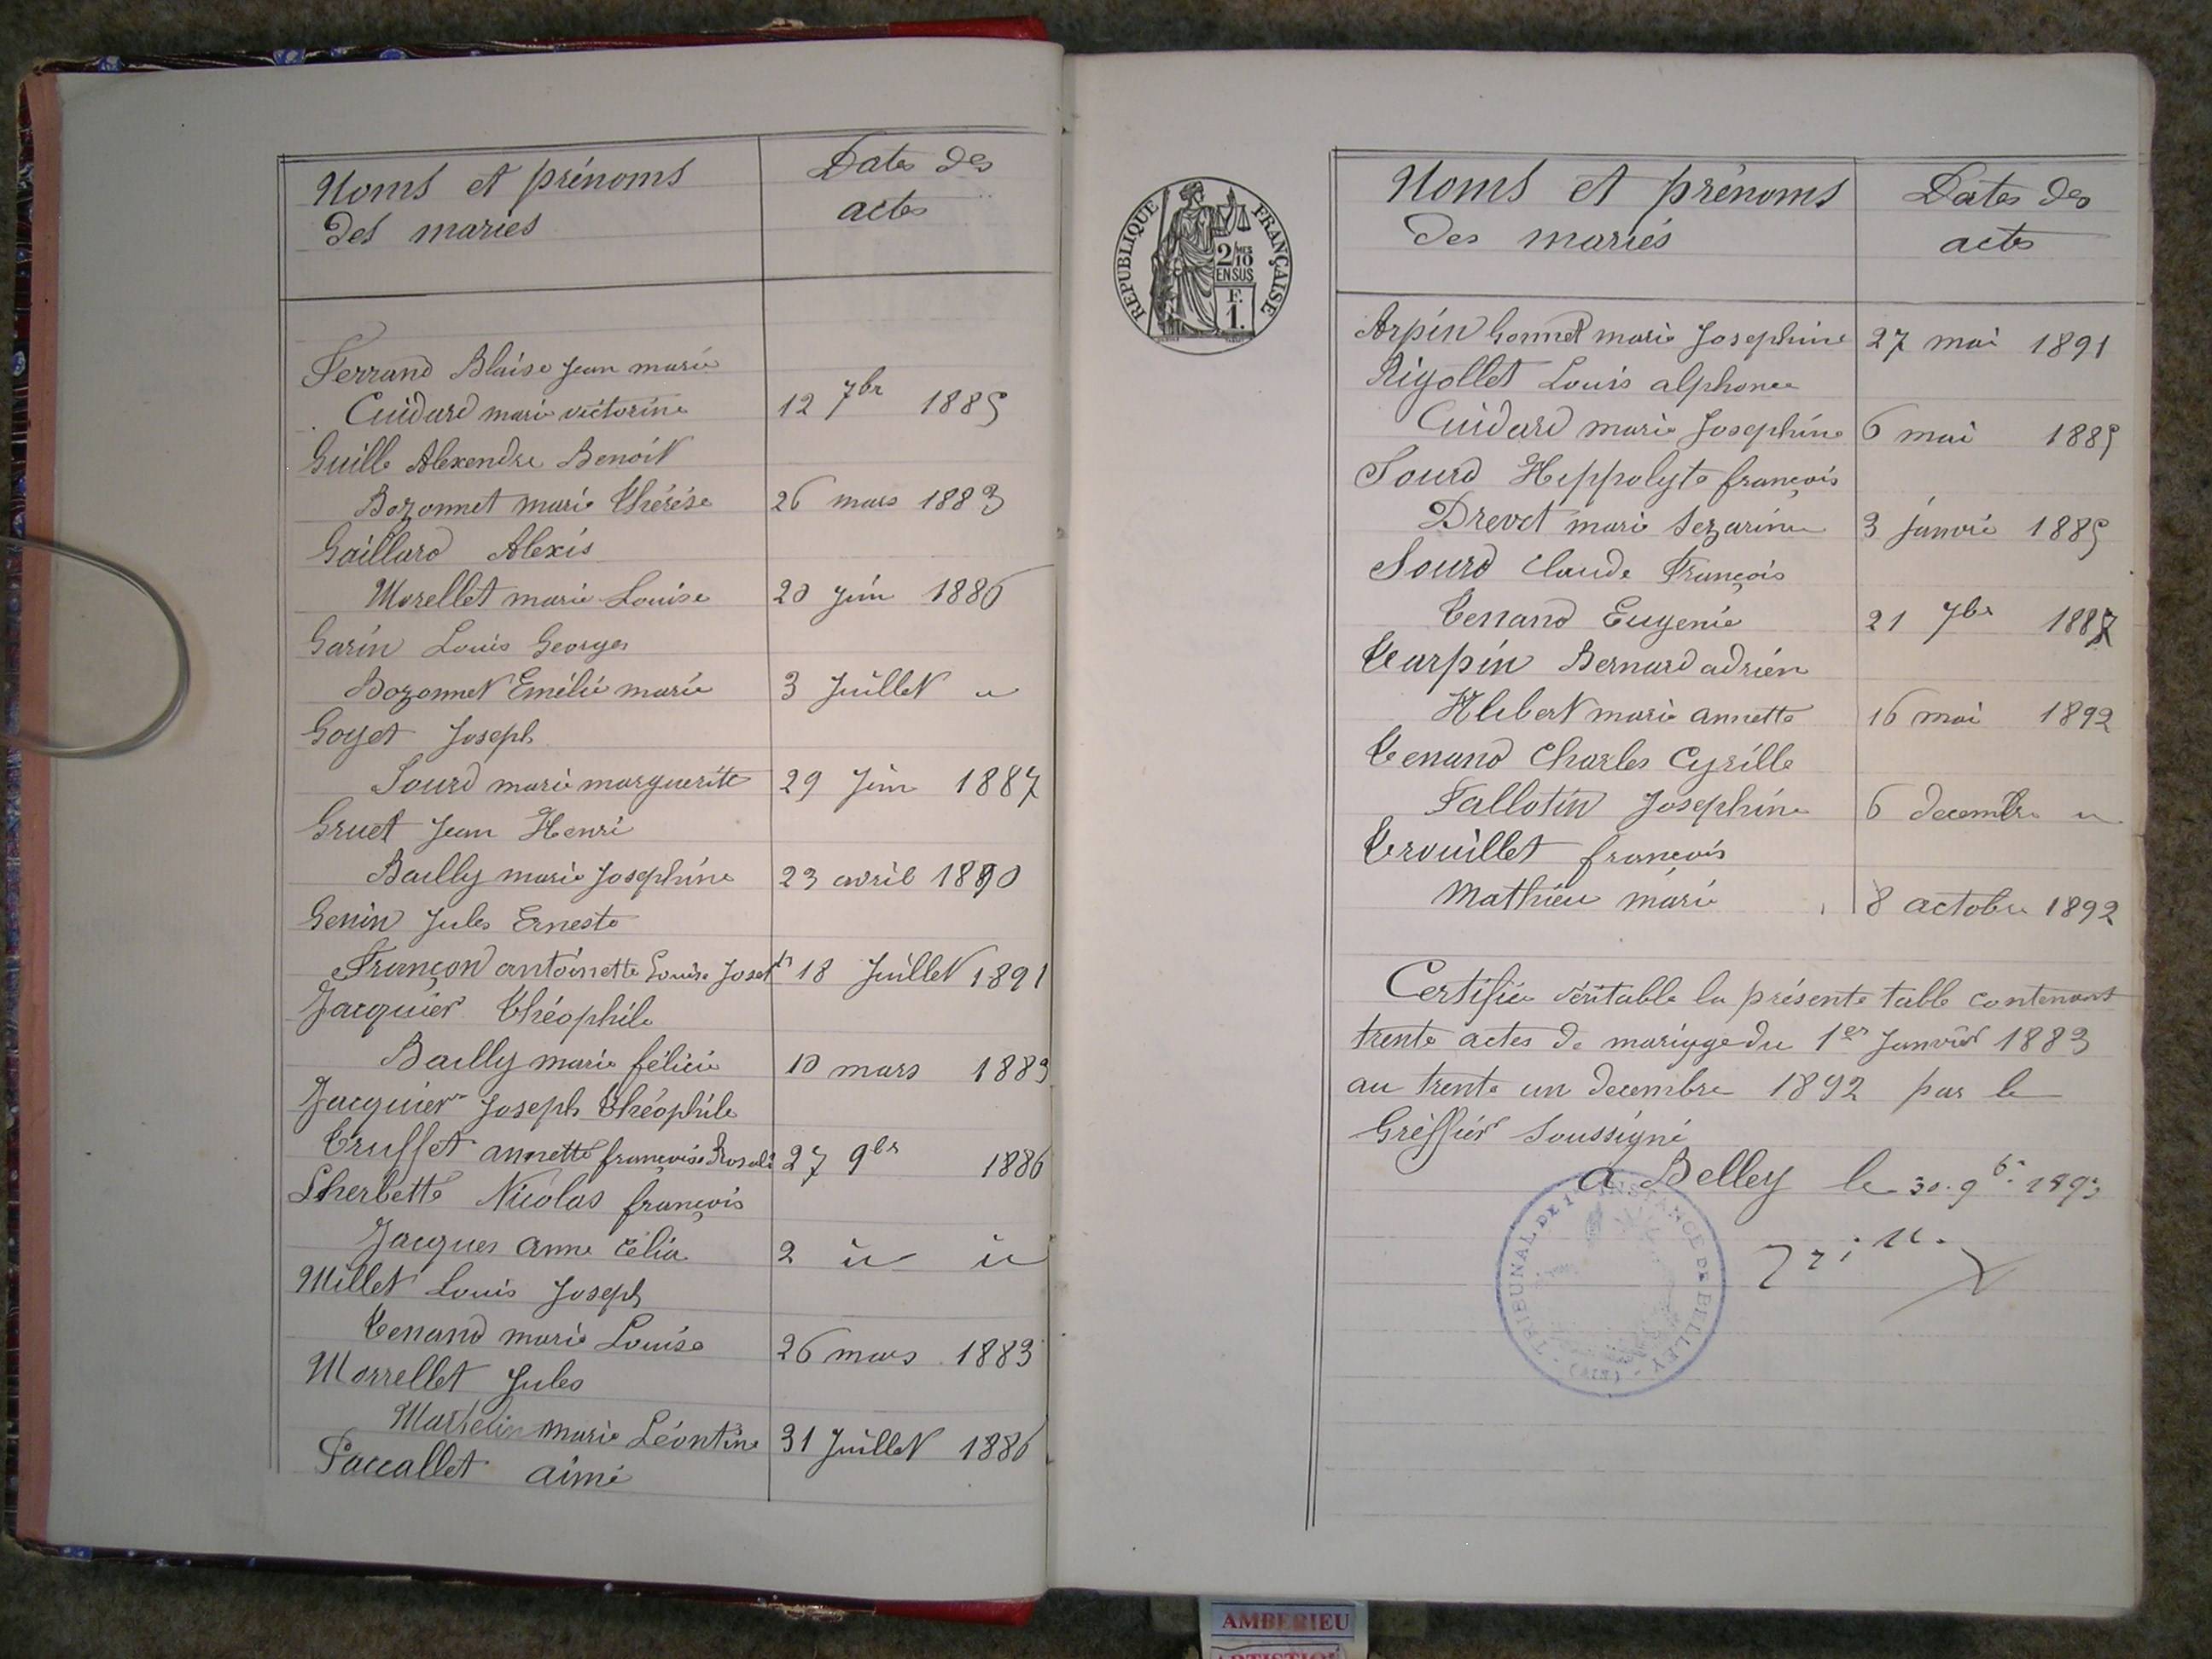 Noms et prénoms
des mariés
Dates des
actes
Ferrand Blaise Jean marie
Cuidard marie victorine 12 7br 1885
Guille Alexendre Benoit
Bozonnet marie Thérèse 26 mars 1883
Gaillard Alexis
Morellet marie Louise 20 juin 1886
Garin Louis Georges
Bozonnet Emélie marie 3 Juillet "
Goyet Joseph
Sourd marie marguerite 29 Juin 1887
Gruet Jean Henri
Bailly marie Josephine 23 avril 1890
Genin Jules Ernest
Françon antoinette Louise Joseph 18 Juillet 1891
Jacquier Théophile
Bailly marie félicie 10 mars 1883
Jacquier Joseph Théophile
Truffet annette françoise Rosali 27 9br 1886
Lherbette Nicolas françois
Jacques anne Célia 2 " "
Millet Louis Joseph
Tenand marie Louise 26 mars 1883
Morrellet Jules
marie Léontine 31 Juillet 1886
Paccallet aimé
REPUBLIQUE FRANÇAISE
2/MES 10
EN SUS
F.
1.
Noms et prénoms
des mariés
Dates des
actes
Arpin Gonnet marie Josephine 27 mai 1891
Rigollet Louis alphonse
Cuidard marie Josephine 6 mai 1885
Sourd Hippolyte françois
Drevet marie Sezarine 3 janvie 1885
Sourd Claude François
Tenand Eugenie 21 7br 1887
Turpin Bernard adrien
marie annette 16 mai 1892
Tenand Charles Cyrille
Fallotin Josephine 6 decembre "
Trouillet françois
Mathieu marie 8 octobre 1892
Certifiée véritable la présente table contenant
trente actes de mariage du 1er Janvier 1883
au trente un decembre 1892 par le
Greffier Soussigné
a Belley le 30. 9b. 1893
TRIBUNAL DE 1re INSTANCE DE BELLEY (AIN)
AMBERIEU